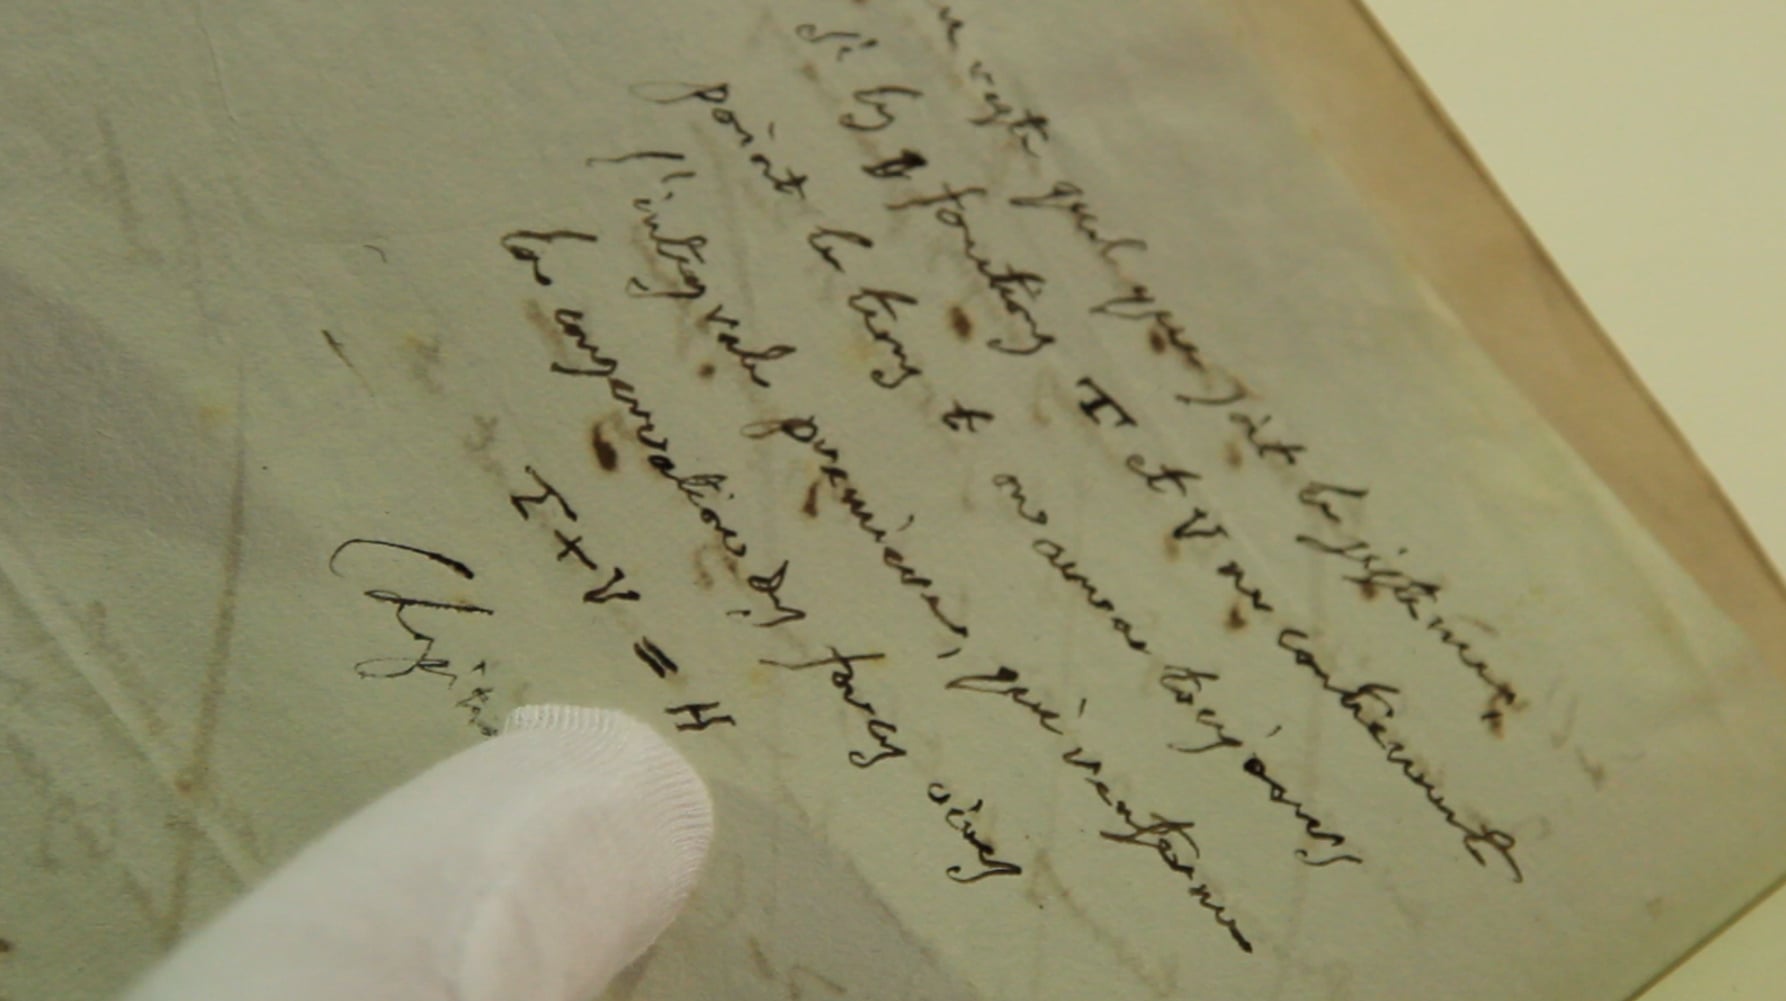 reste quel que soit le système.
Si les fonctions T et V ne contiennent
point le tems t on aura toujours
l'intégrale première, qui renferme
la conservation des forces vives
T + V = H